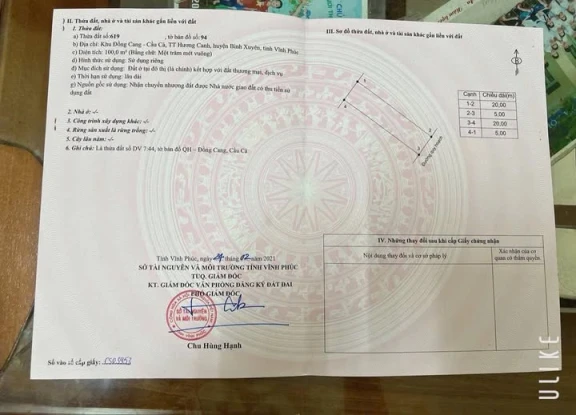 II. Thửa đất, nhà ở và tài sản khác gắn liền với đất
1. Thửa đất:
a) Thửa đất số: 619 , tờ bản đồ số: 94
b) Địa chỉ: Khu Đồng Cang - Cầu Cà, TT Hương Canh, huyện Bình Xuyên, tỉnh Vĩnh Phúc
c) Diện tích: 100,0 m² (Bằng chữ: Một trăm mét vuông)
d) Hình thức sử dụng: Sử dụng riêng
đ) Mục đích sử dụng: Đất ở tại đô thị (là chính) kết hợp với đất thương mại, dịch vụ
e) Thời hạn sử dụng: lâu dài
g) Nguồn gốc sử dụng: Nhận chuyển nhượng đất được Nhà nước giao đất có thu tiền sử
dụng đất
2. Nhà ở: -/-
3. Công trình xây dựng khác: -/-
4. Rừng sản xuất là rừng trồng: -/-
5. Cây lâu năm: -/-
6. Ghi chú: Là thửa đất số DV 7/44, tờ bản đồ QH – Đồng Cang, Cầu Cà
Tỉnh Vĩnh Phúc, ngày tháng 02 năm 2021
SỞ TÀI NGUYÊN VÀ MÔI TRƯỜNG TỈNH VĨNH PHÚC
TUQ. GIÁM ĐỐC
KT. GIÁM ĐỐC VĂN PHÒNG ĐĂNG KÝ ĐẤT ĐAI
PHÓ GIÁM ĐỐC
SỞ TÀI NGUYÊN
VÀ MÔI TRƯỜNG
Chu Hùng Hạnh
Số vào sổ cấp giấy:
III. Sơ đồ thửa đất, nhà ở và tài sản khác gắn liền với đất
Đường quy hoạch
Cạnh Chiều dài(m)
1-2 20,00
2-3 5,00
3-4 20,00
4-1 5,00
IV. Những thay đổi sau khi cấp Giấy chứng nhận
Nội dung thay đổi và cơ sở pháp lý
Xác nhận của cơ
quan có thẩm quyền
ULIKE